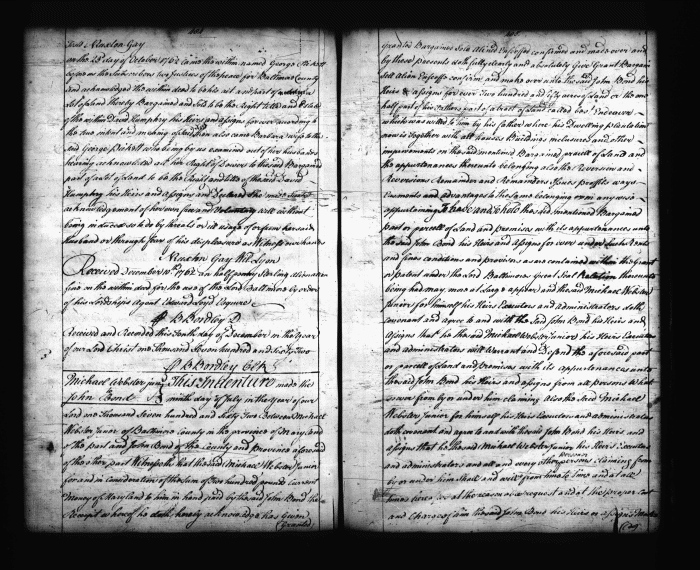 464
Nixston Gay
on the 23d day of October 1762 came the within named George Pickett
before us the subscribers two Justices of the peace for Baltimore County
and acknowledged the within deed to be his act and
of Land thereby Bargained and sold to be the right title and Estate
of the within David Humphry his Heirs and assigns for ever according to
the true intent and meaning of the also came Barbara wife to the
said George Pickett who being by us examined out of her husbands
hearing acknowledged all her Right of Dower to the said Bargained
part of of Land to be the Right and title of the said David
Humphry his Heirs and assigns and Declared she
acknowledgement of her own free and Voluntary will without
being induced so to do by threats or ill usage of her said
husband or through fear of his displeasure as Witness our hands
Nixston Gay Wm. Lyon
Received December 10th 1762 Sterling alienation
fine on the within deed for the use of the Lord Baltimore by order
of his Lordships Agent Edward Lloyd Esquire
B Bordley D
Received and Recorded this Tenth day of December in the Year
of our Lord Christ one Thousand Seven hundred and Sixty Two
B Bordley Clk
Michael Webster junr This Indenture made the
John Bond ninth day of July in the Year of our
Lord one thousand Seven hundred and sixty Two Between Michael
Webster Junior of Baltimore County in the province of Maryland
of the one part and John Bond of the County and province aforesaid
of the other part Witnesseth that the said Michael Webster Junior
for and in consideration of the sum of Two hundred pounds Current
Money of Maryland to him in hand paid by the said John Bond the
Receipt whereof he doth hereby acknowledge has Given
(Granted
465
Granted Bargained Sold Aliened Enfeoffed confirmed and made over and
by these presents doth fully clearly and absolutely Give Grant Bargain
Sell Alien Enfeoff confirm and make over unto the said John Bond his
Heirs & assigns for ever Two hundred and fifty acres of Land or the one
half part of his part of a tract of Land called
which was willed to him by his father where his Dwelling plantation
now is Together with all houses Buildings and other
improvements on the said mentioned Bargained parcell of Land and
the appurtenances thereunto belonging also the Reversion and
Reversions Remainder and Remainders Issues profits ways
Easments and advantages to the same belonging or in any wise
appertaining To have and to hold the said mentioned Bargained
part or parcell of Land and premises with its appurtenances unto
the said John Bond his Heirs and assigns for ever under such Rents
and fines conditions and provisions as are contained within the Grant
or patent under the Lord Baltimores Great Seal Relation thereunto
being had may more at Large appear and the said Michael Webster
Junior for himself his Heirs Executors and administrators doth
covenant and agree to and with the said John Bond his Heirs and
assigns that he the said Michael Webster Junior his Heirs Executors
and administrators will Warrant and Defend the aforesaid part
or parcell of Land and premises with its appurtenances unto
the said John Bond his Heirs and assigns from all persons
from by or under him claiming also the said Michael
Webster Junior for himself his Heirs Executors and administrators
doth covenant and agree to and with the said John Bond his Heirs and
assigns that he the said Michael Webster Junior his Heirs Executors
and administrators and all and every other person persons claiming from
by or under him Shall and will from time to Time and at all
times at the reasonable request and at the proper cost
and Charges of him the said John Bond his Heirs or assigns